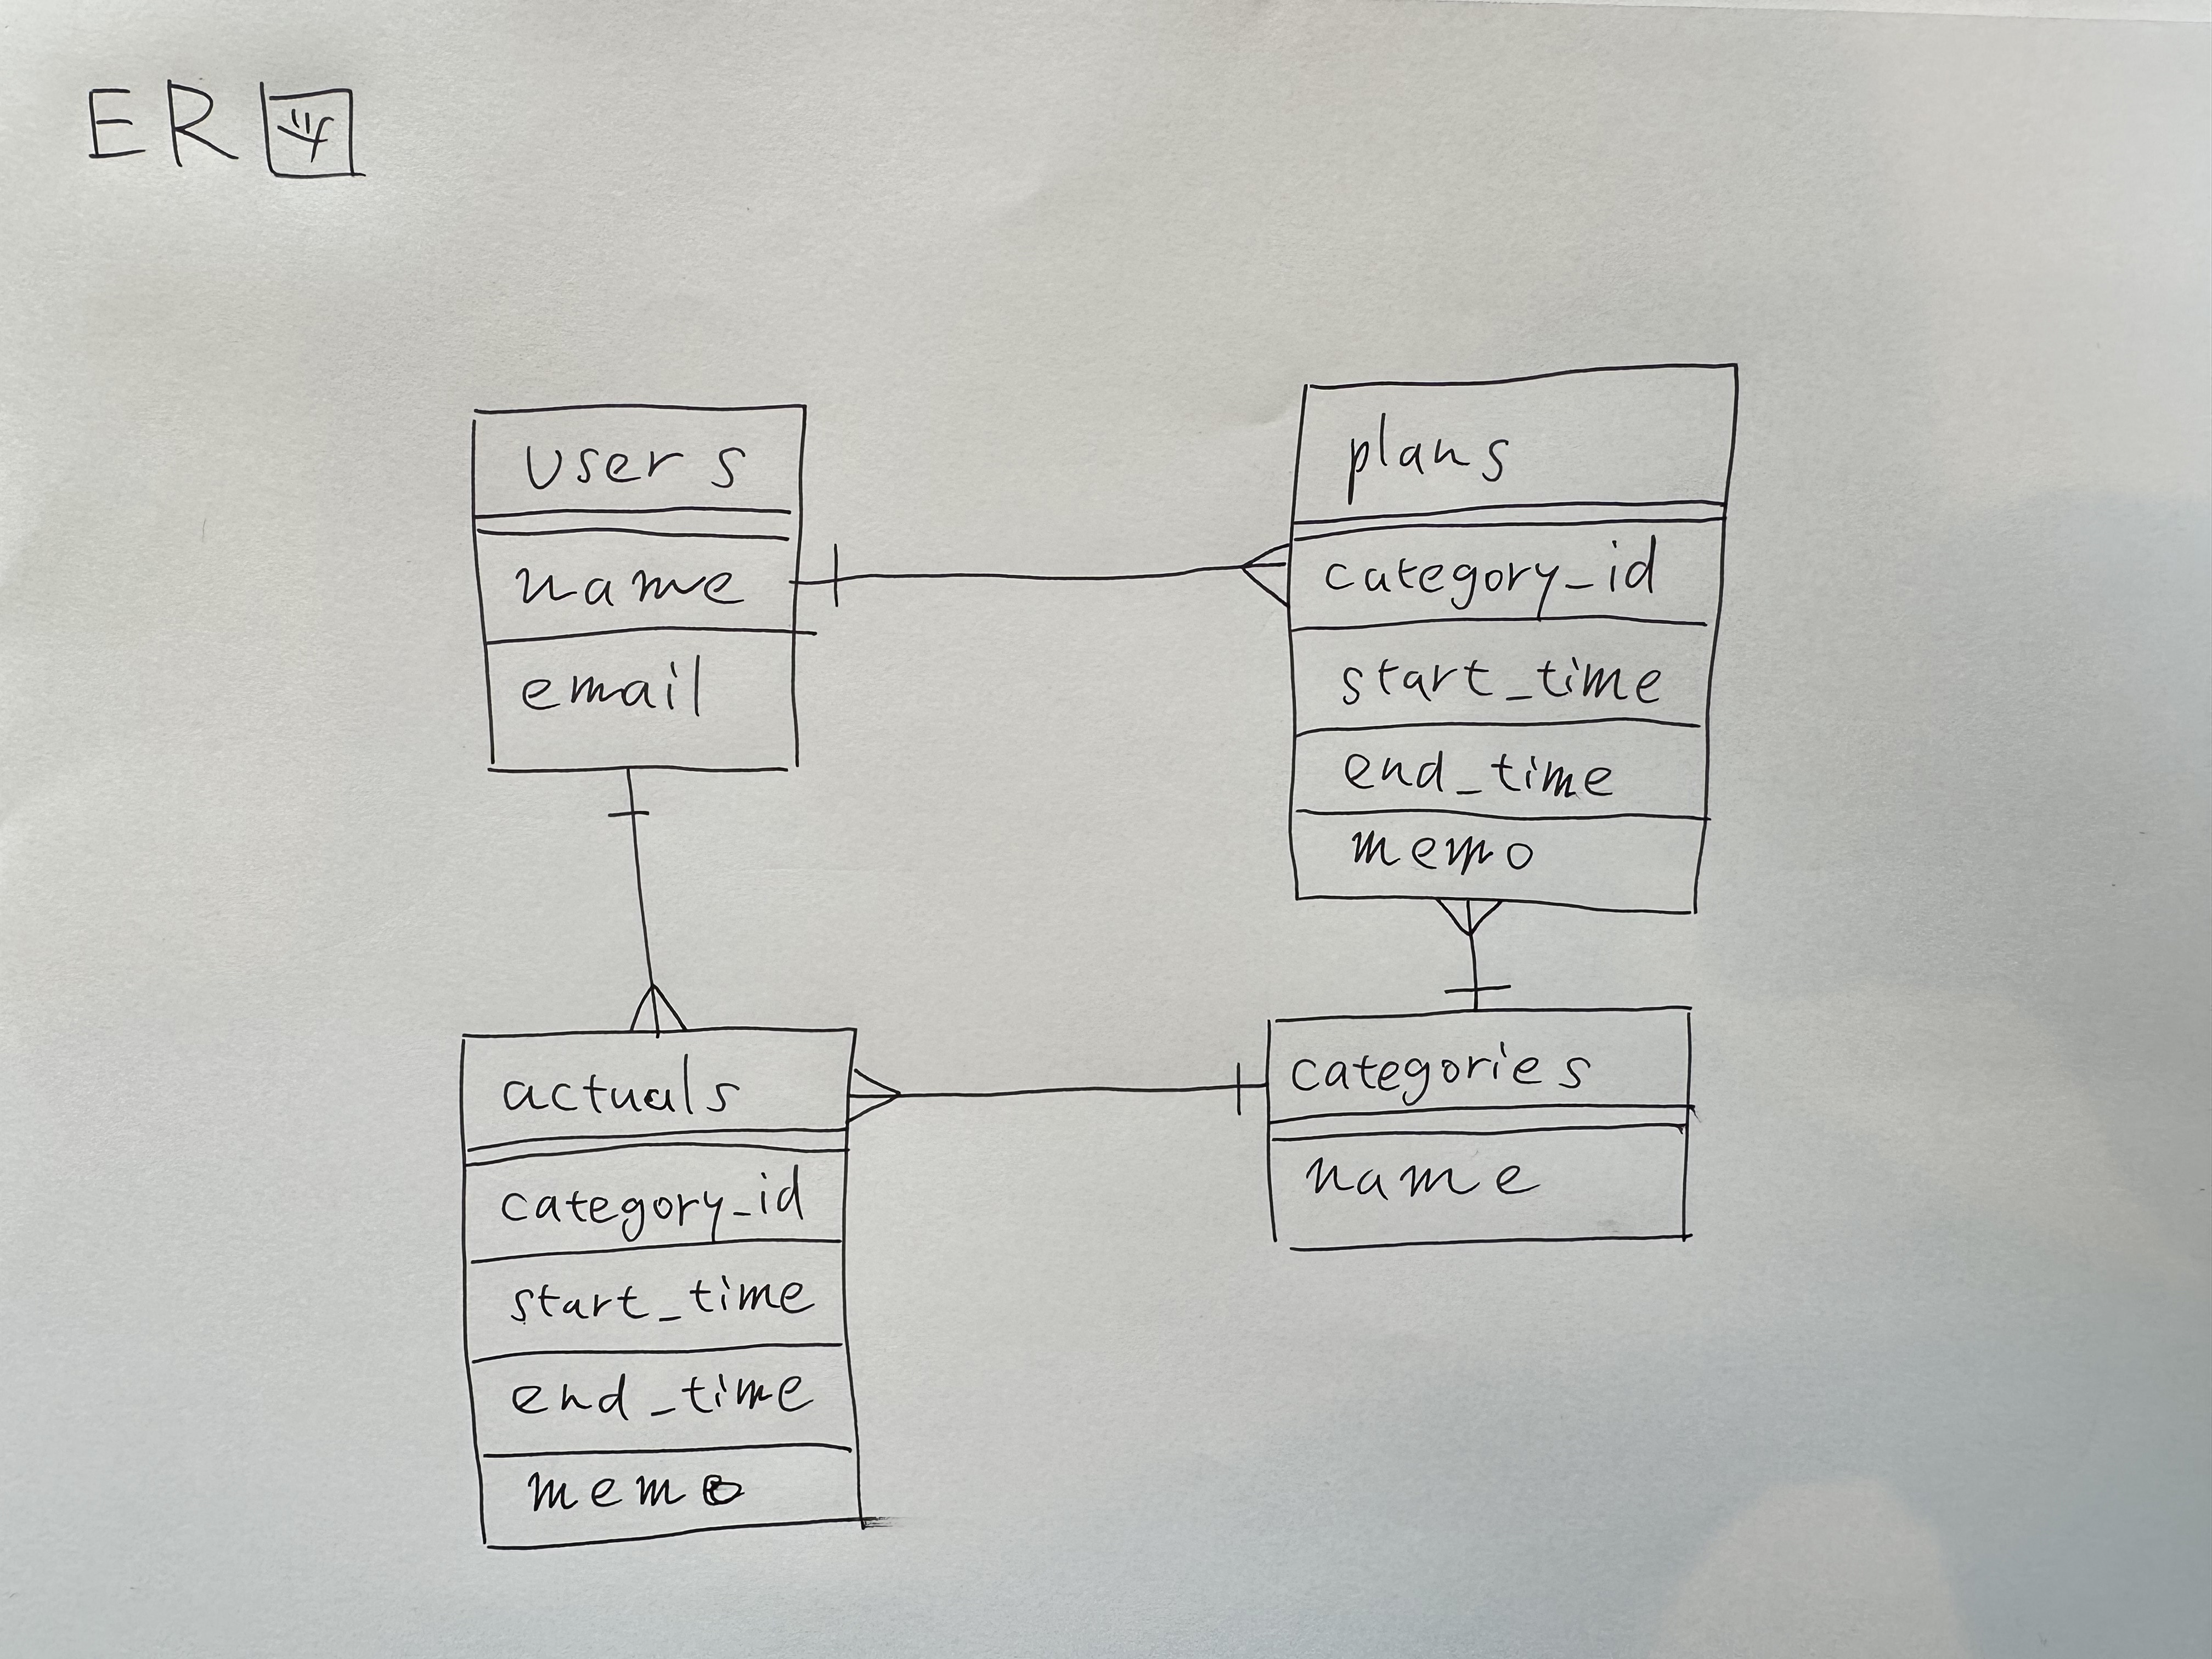 ER図
users
name
email
plans
category_id
start_time
end_time
memo
actuals
category_id
start_time
end_time
memo
categories
name